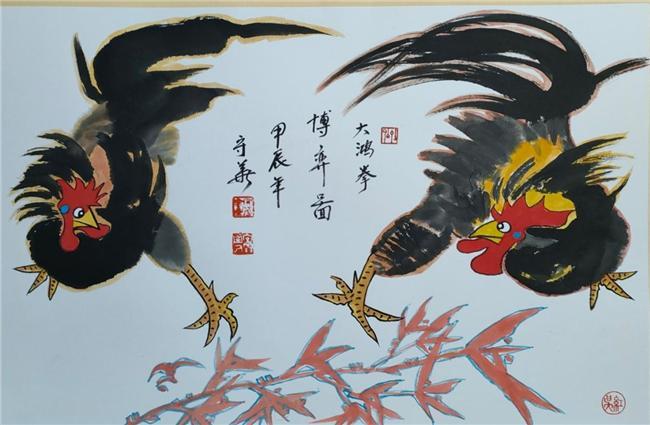 大鸿拳
博弈圖
甲辰年
守